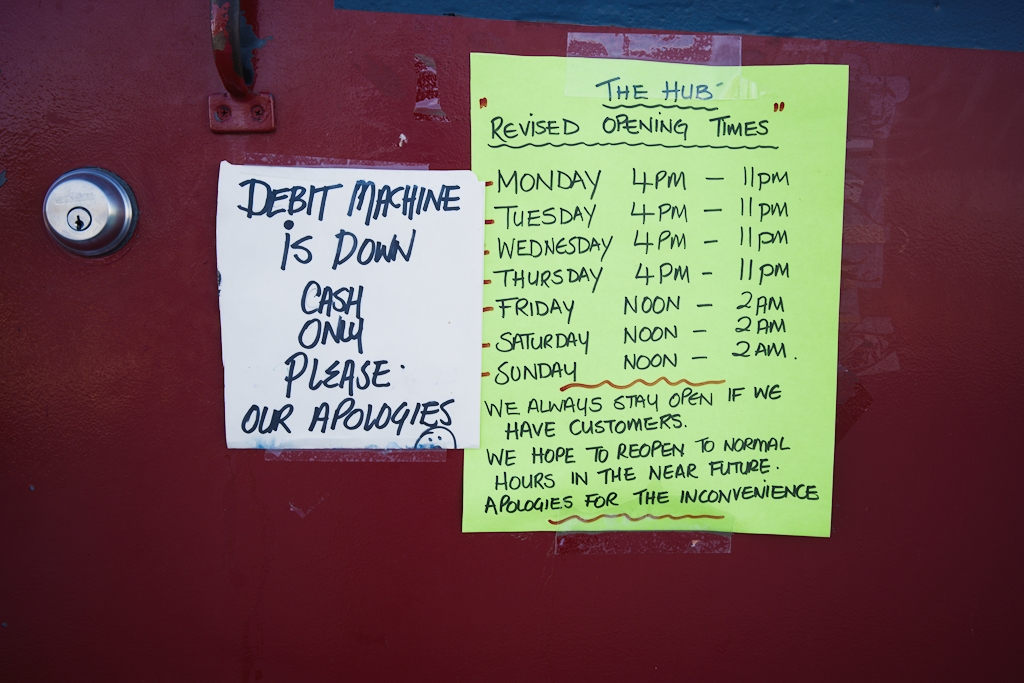 DEBIT MACHINE
IS DOWN
CASH
ONLY
PLEASE.
OUR APOLOGIES
"THE HUB"
REVISED OPENING TIMES
- MONDAY 4PM - 11PM
- TUESDAY 4PM - 11PM
- WEDNESDAY 4PM - 11PM
- THURSDAY 4PM - 11PM
- FRIDAY NOON - 2AM
- SATURDAY NOON - 2AM
- SUNDAY NOON - 2AM.
WE ALWAYS STAY OPEN IF WE
HAVE CUSTOMERS.
WE HOPE TO REOPEN TO NORMAL
HOURS IN THE NEAR FUTURE.
APOLOGIES FOR THE INCONVENIENCE